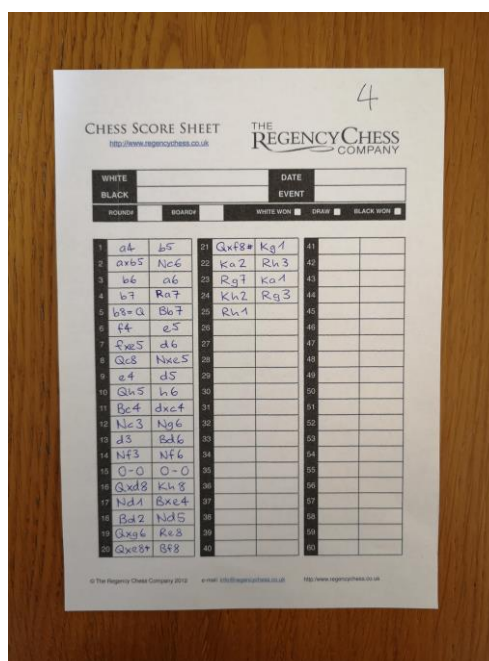 4
CHESS SCORE SHEET
http://www.regencychess.co.uk
THE
REGENCY CHESS
COMPANY
WHITE DATE
BLACK EVENT
ROUND# BOARD# WHITE WON DRAW BLACK WON
1 a4 b5 21 Qxf8# Kg1 41
2 axb5 Nc6 22 Ka2 Rh3 42
3 b6 a6 23 Rg7 Ka1 43
4 b7 Ra7 24 Kh2 Rg3 44
5 b8=Q Bb7 25 Rh1 45
6 f4 e5 26 46
7 fxe5 d6 27 47
8 Qc8 Nxe5 28 48
9 e4 d5 29 49
10 Qh5 h6 30 50
11 Bc4 dxc4 31 51
12 Nc3 Ng6 32 52
13 d3 Bd6 33 53
14 Nf3 Nf6 34 54
15 0-0 0-0 35 55
16 Qxd8 Kh8 36 56
17 Nd1 Bxe4 37 57
18 Bd2 Nd5 38 58
19 Qxg6 Re8 39 59
20 Qxe8+ Bf8 40 60
© The Regency Chess Company 2012 e-mail: info@regencychess.co.uk http://www.regencychess.co.uk